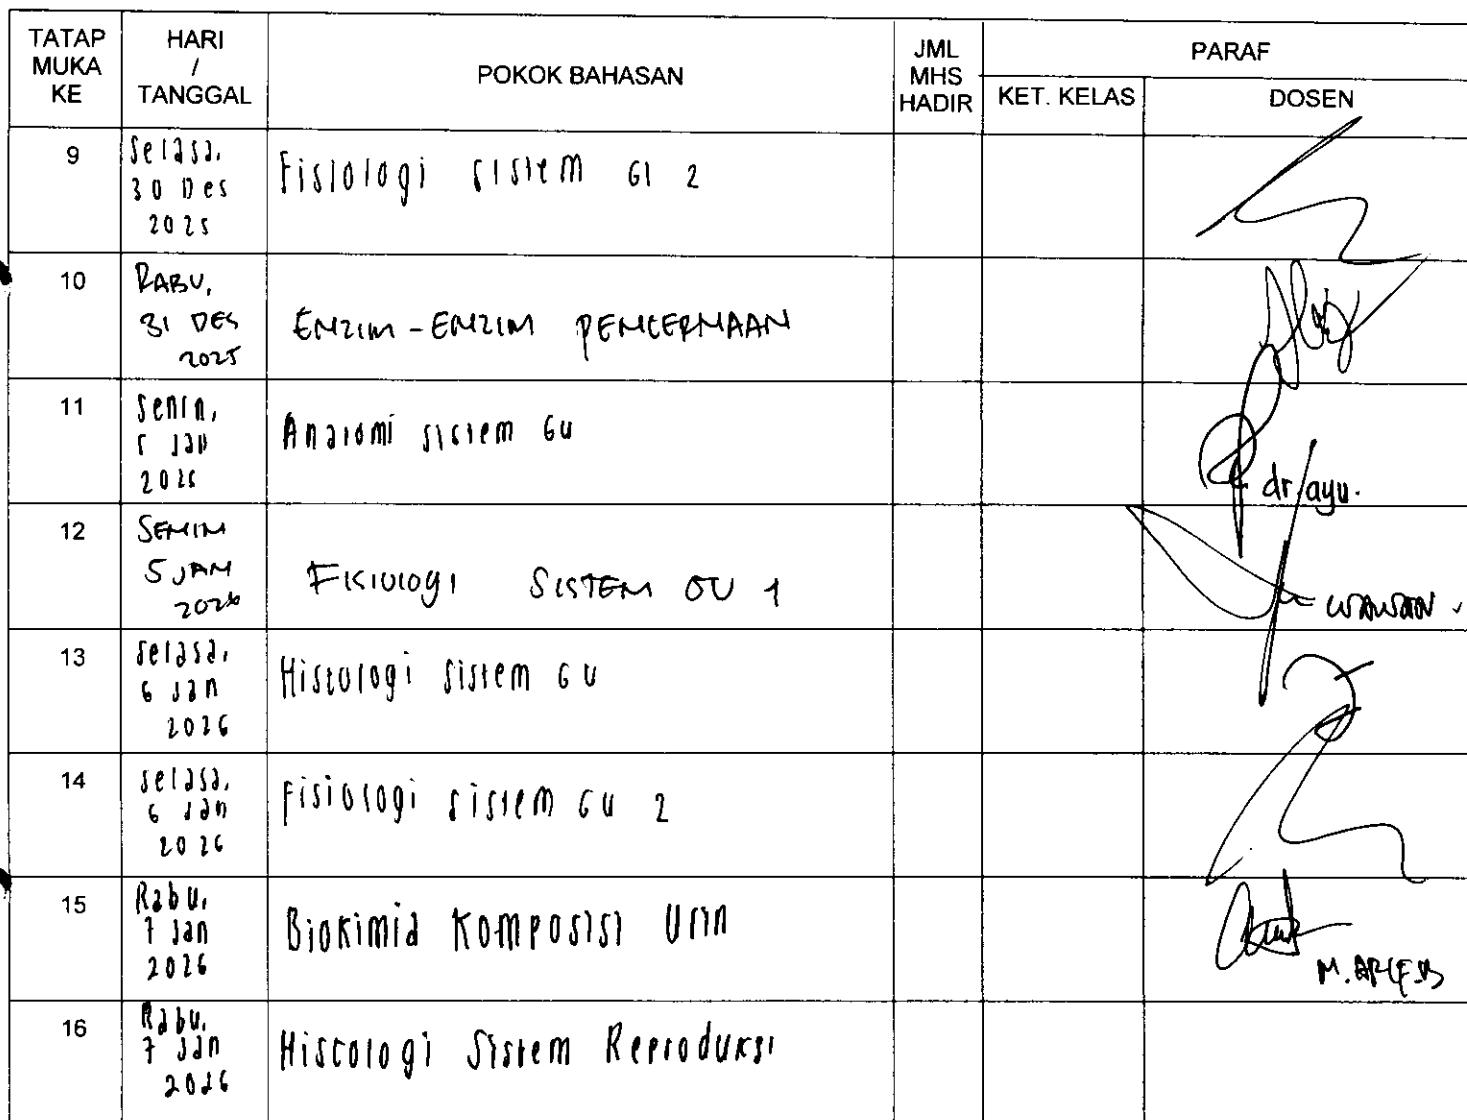 TATAP MUKA KE
HARI / TANGGAL
POKOK BAHASAN
JML MHS HADIR
PARAF
KET. KELAS
DOSEN
9
Selasa,
30 Des
2025
Fisiologi sistem GI 2
10
RABU,
31 DES
2025
ENZIM-ENZIM PENCERNAAN
11
Senin,
5 Jan
2026
Anatomi sistem GU
dr. ayu.
12
SENIN
5 JAN
2026
FISIOLOGI SISTEM GU 1
WAWAN
13
Selasa,
6 Jan
2026
Histologi sistem GU
14
Selasa,
6 Jan
2026
Fisiologi sistem GU 2
15
Rabu,
7 Jan
2026
Biokimia Komposisi Urin
M.
16
Rabu,
7 Jan
2026
Histologi Sistem Reproduksi